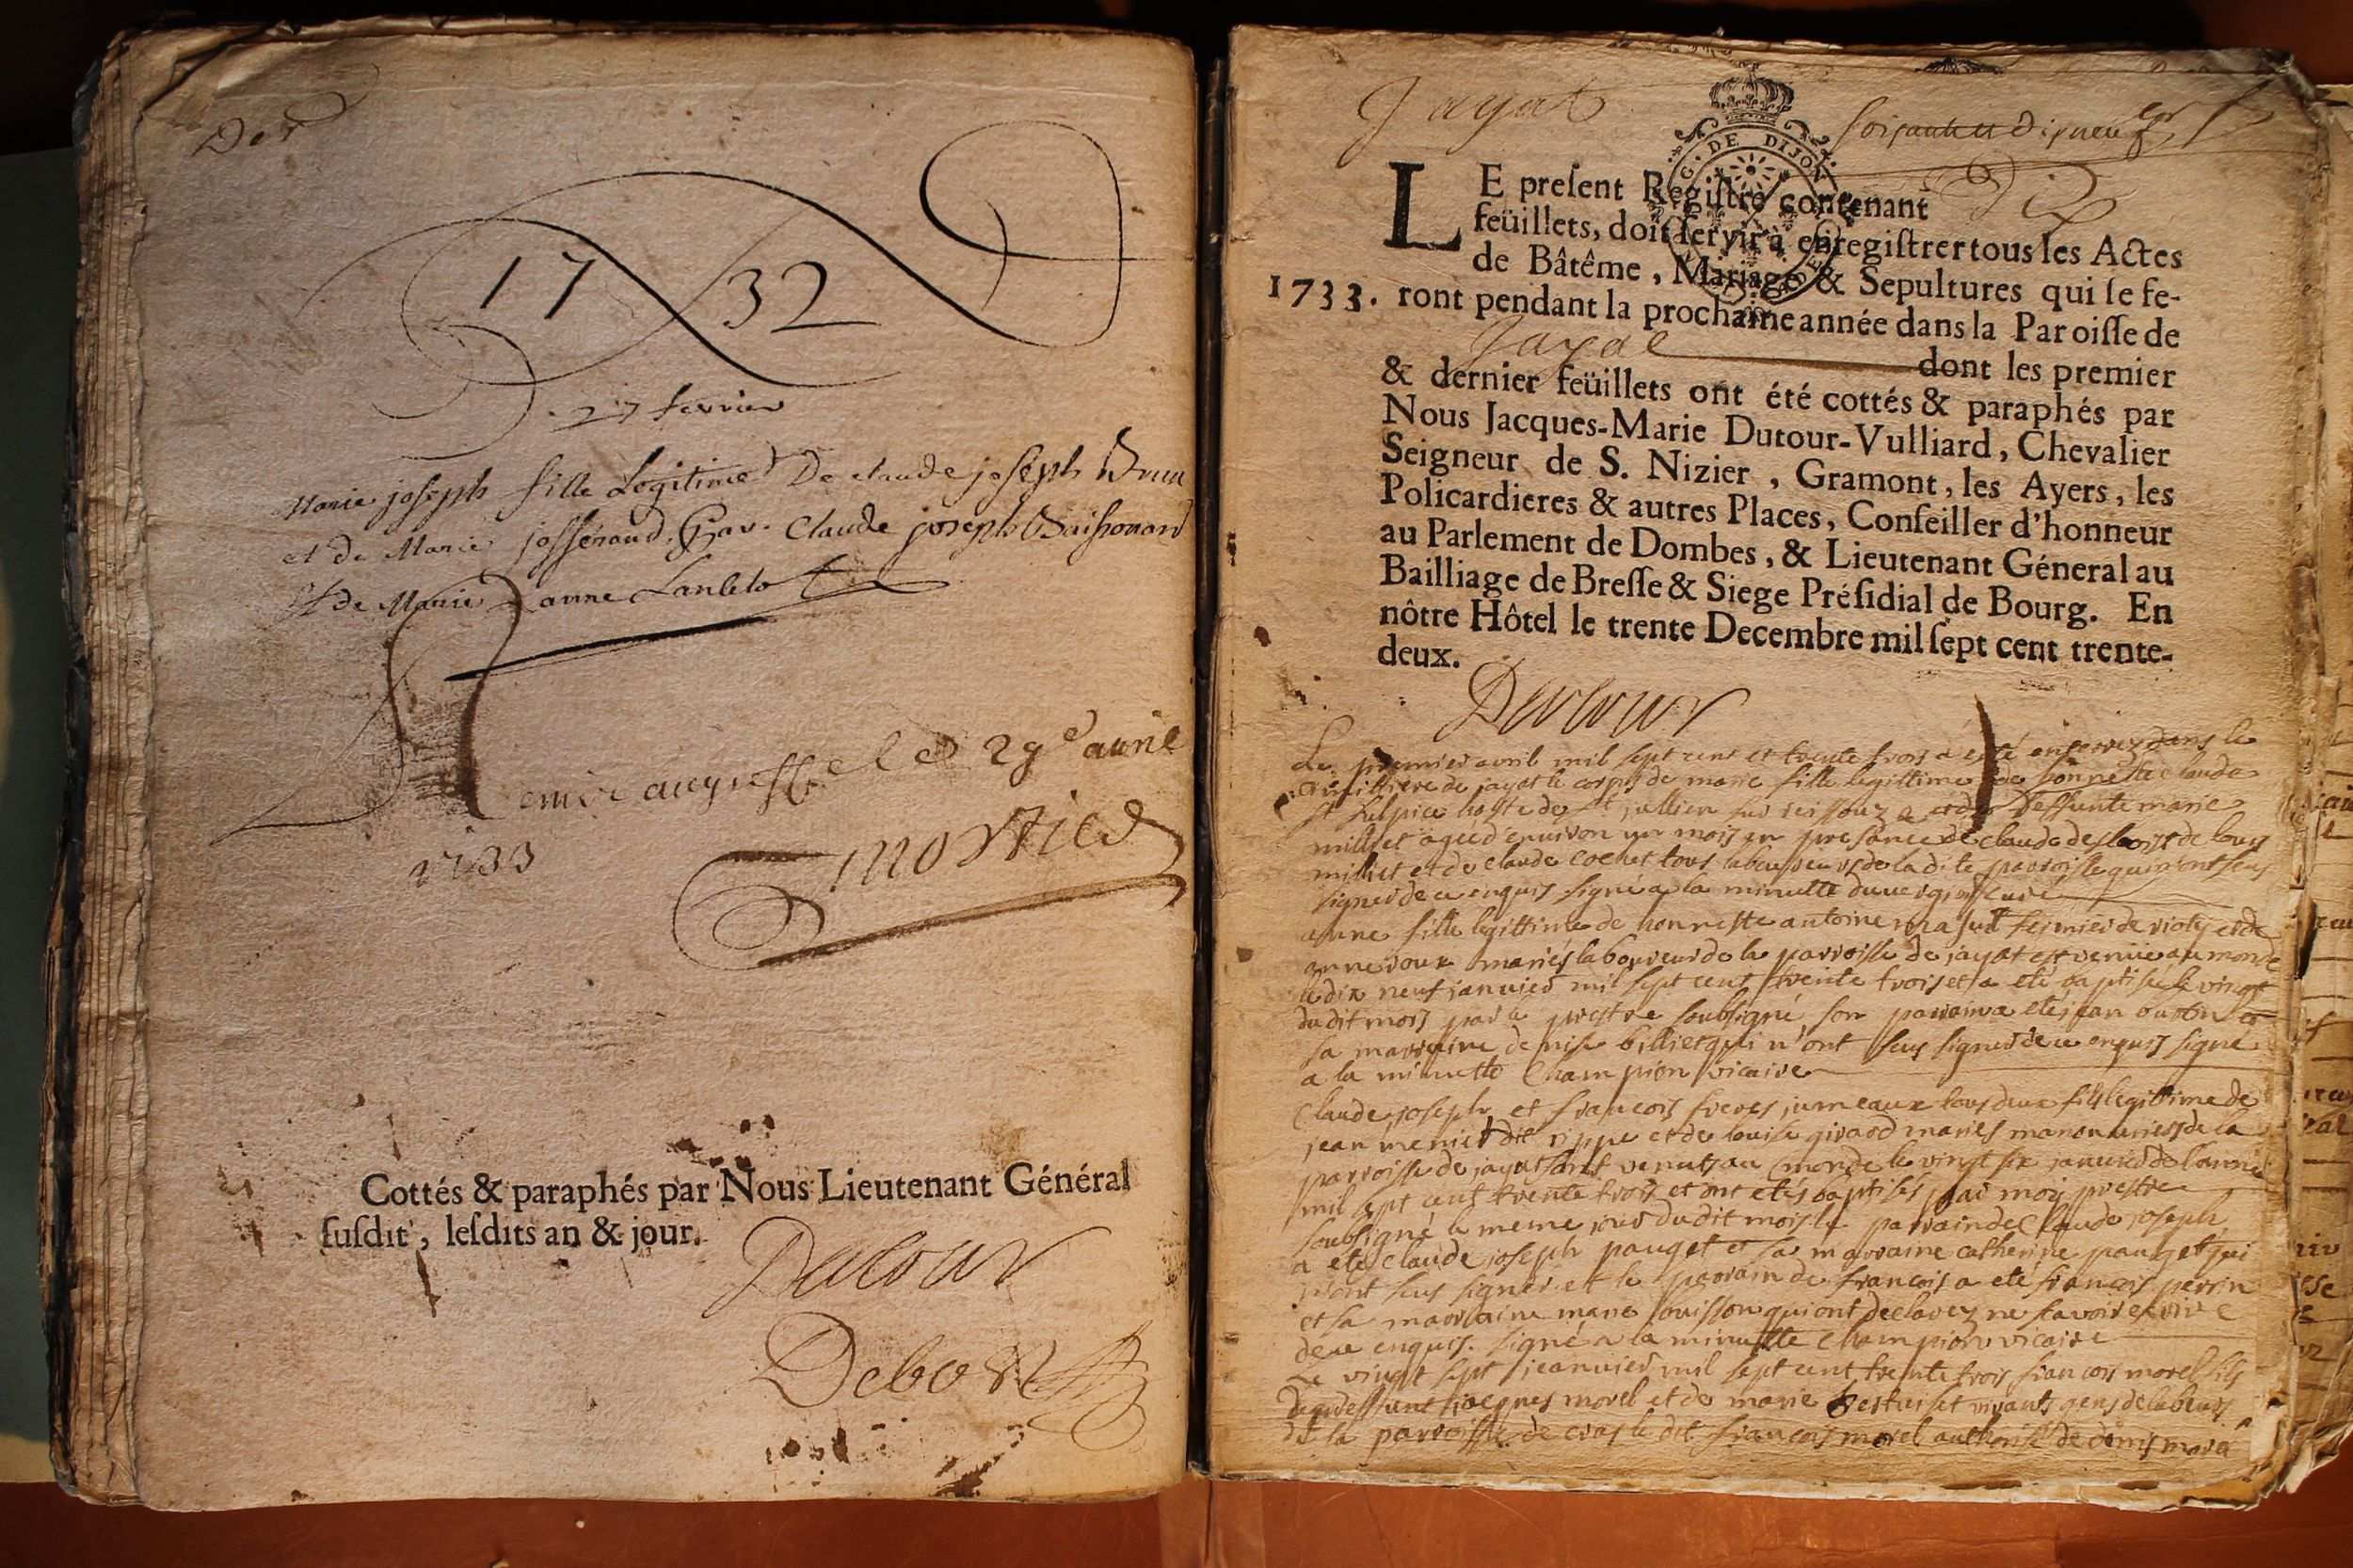 Der
1732
27 fevrier
Marie joseph fille Legitime De claude joseph Brun
et de Marie josserand. Par. Claude joseph
& de Marie anne
Remis au greffe le 29e avril
1733
mortier
Cottés & paraphés par Nous Lieutenant Général
ſuſdit, leſdits an & jour.
Dutour
Jayat
G. DE DIJON
LE preſent Regiſtre contenant
feüillets, doit ſervir à enregiſtrer tous les Actes
de Bâtême, Mariage & Sepultures qui ſe fe-
1733. ront pendant la prochaine année dans la Paroiſſe de
Jayat dont les premier
& dernier feüillets ont été cottés & paraphés par
Nous Jacques-Marie Dutour-Vulliard, Chevalier
Seigneur de S. Nizier, Gramont, les Ayers, les
Policardieres & autres Places, Conſeiller d'honneur
au Parlement de Dombes, & Lieutenant Géneral au
Bailliage de Breſſe & Siege Préſidial de Bourg. En
nôtre Hôtel le trente Decembre mil ſept cent trente-
deux.
Dutour
Le premier avril mil sept cent et trente trois a esté dans le
cimittiere de jayat le corps de marie fille legittime de honneste claude
st sulpice hoste de st jullien sur reissouze et de deffunte marie
milliet agée d'environ un mois en presance de claude de louis
milliet et de claude cochet tous laboureurs de la dite parroisse qui n'ont sceus
signer de ce enquis signé a la minutte curé
anne fille legittime de honneste antoine fermier de et de
anne roux mariés laboureur de la parroisse de jayat est venüe au monde
le dix neuf janvier mil sept cent trente trois et a eté baptisée le vingt
du dit mois par le prestre soubsigné son parrain a eté jean et
sa marraine denise billiet qui n'ont sceus signer de ce enquis signé
a la minutte Champion vicaire
Claude joseph et francois freres jumeaux tous deux fils legittime de
jean dit rippe et de louise girard mariés manouvriers de la
parroisse de jayat sont venuts au monde le vingt six janvier de l'année
mil sept cent trente trois et ont etés baptisés par moy prestre
soubsigné le meme jour du dit mois le parrain de Claude joseph
a eté claude joseph pauget et sa marraine catherine pauget qui
n'ont sceus signer et le parrain de francois a eté francois perrin
et sa marraine marie qui ont declarez ne scavoir escrire
de ce enquis. signé a la minutte Champion vicaire
Le vingt sept jeanvier mil sept cent trente trois francois morel fils
de deffunt jacques morel et de marie vivants gens de labeurs
de la parroisse de cras le dit francois morel authorisé de denis morel